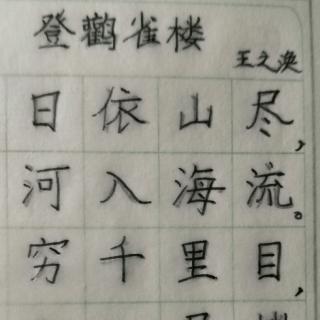 登鹳雀楼
王之涣
日依山尽,
河入海流。
穷千里目,